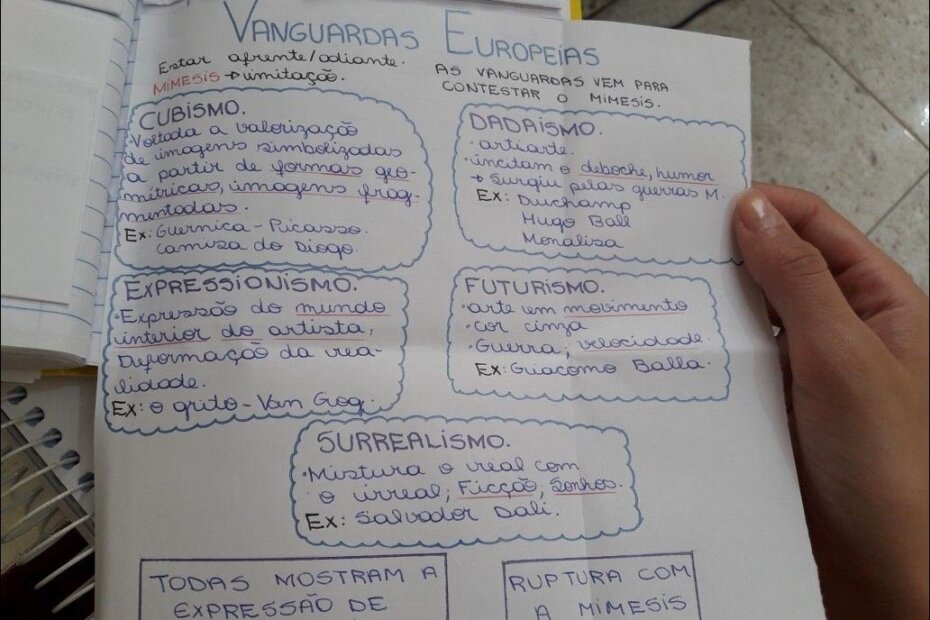 VANGUARDAS EUROPEIAS
Estar afrente/adiante.
MIMESIS → imitação.
AS VANGUARDAS VEM PARA
CONTESTAR O MIMESIS.
CUBISMO.
·Voltada a valorização
de imagens simbolizadas
a partir de formas geo-
métricas, imagens frag-
mentadas.
Ex: Guernica - Picasso.
Camusa do Diogo.
DADAÍSMO.
· artiarte.
·incitam o deboche, humor
→ Surgiu pelas guerras M.
Ex: Duchamp
Hugo Ball
Monalisa
EXPRESSIONISMO.
·Expressão do mundo
interior do artista,
Deformação da rea-
lidade.
Ex: o grito - Van Gog.
FUTURISMO.
·arte em movimento
·cor cinza
·Guerra; velocidade.
Ex: Guacomo Balla.
SURREALISMO.
·Mistura o real com
o irreal; Ficção; Sonhos.
Ex: Salvador Dali.
TODAS MOSTRAM A
EXPRESSÃO DE
RUPTURA COM
A MIMESIS